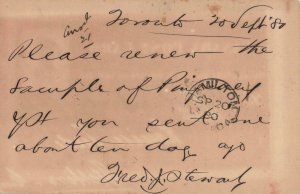 Toronto 20 Sept '80
Ansd
21
Please renew the
Sample of
HAMILTON
SP 20
80
Yst you sent me
about ten days ago
Fred J. Stewart